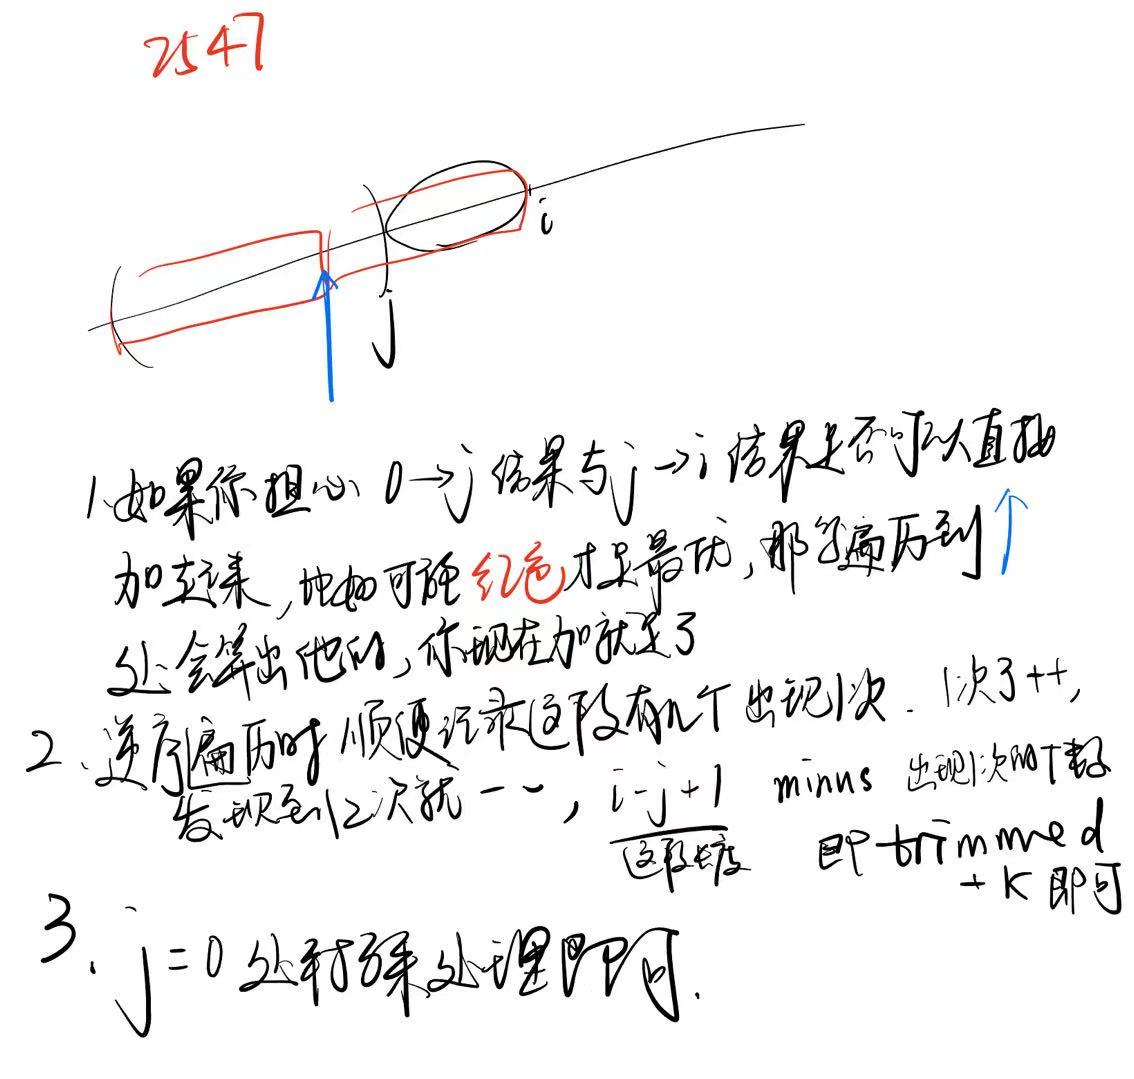 2547
i
j
1. 如果你担心 0→j 结果与 j→i 结果是否可以直接
加起来, 比如可能红色才是最优, 那么遍历到↑
处会算出他的, 你现在加就是了
2. 逆序遍历时 顺便记录这段有几个出现1次. 1次了++,
发现到2次就--, i-j+1 minus 出现1次的个数
这段长度 即 trimmed
+ K 即可
3. j=0 处特殊处理即可.